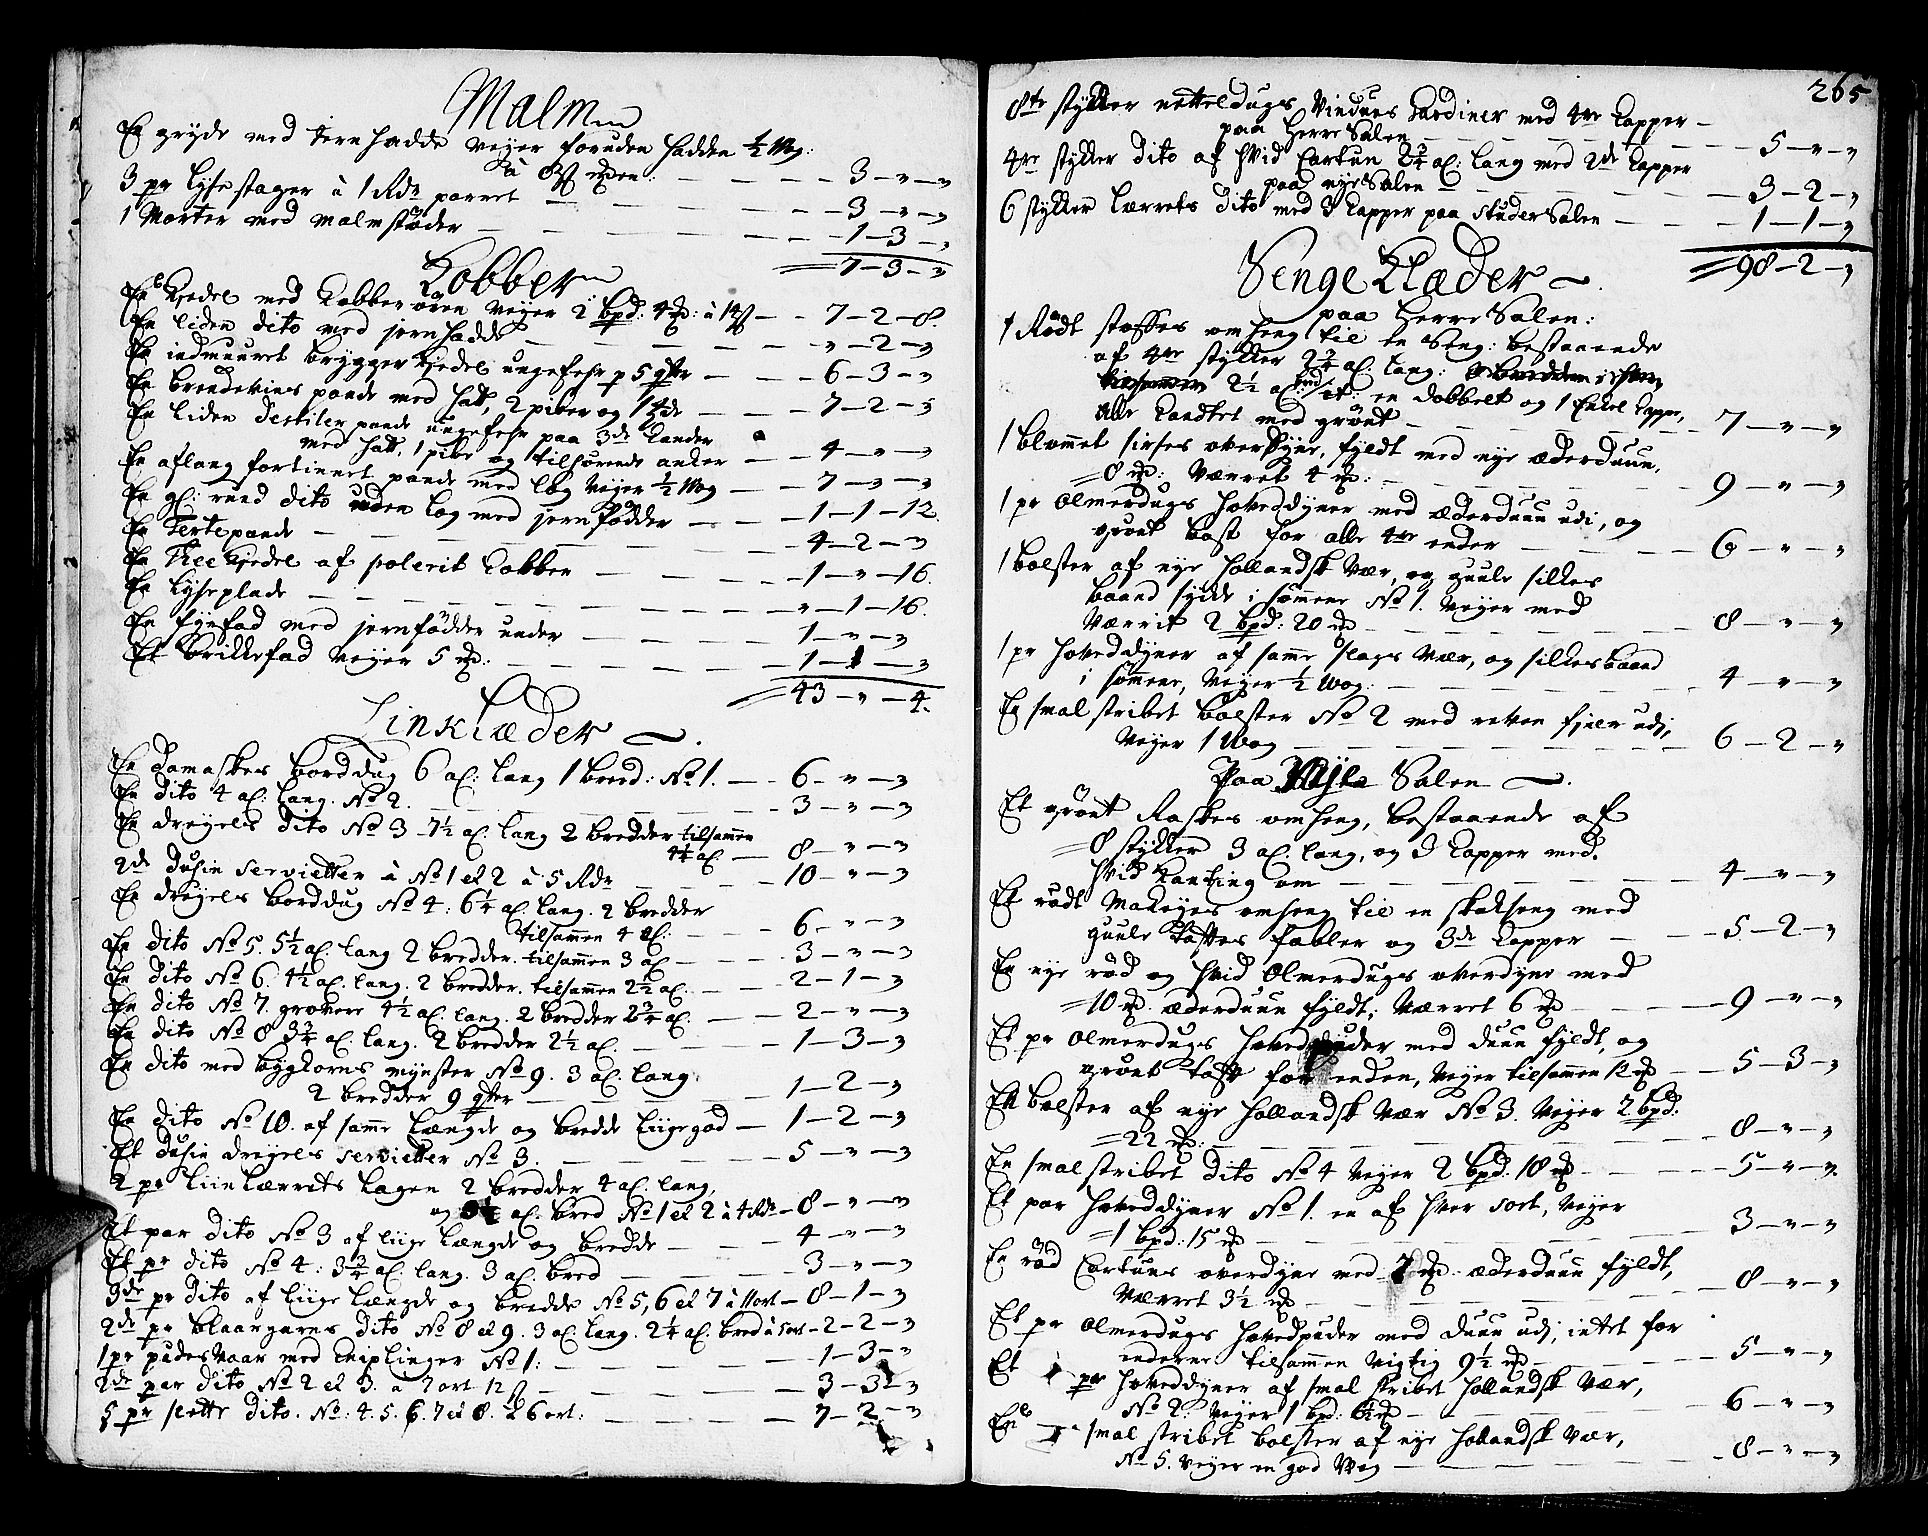 Malm
En gryde med jern hadde vejer foruden hadden ½ Wog:
à 8 ß mden: 3 – " – "
3 pr Lysestager à 1 Rdr parret 3 – " – "
1 Morter med Malmstøder 1 – 3 – "
7 – 3 – "
Kobber
En Kjedel med Kobber øren vejer 2 bpd: 4 md: à 14 ß 7 – 2 – 8.
En liden dito med jernhadde " – 2 – "
En indmuuret brygger Kjedel ungefehr p 5 qtr 6 – 3 – "
En brendevins pande med hatt, 2 piber og 1
En liden destiler pande ungefehr paa 3de Kander
med hatt, 1 pibe og tilhørende anker 4 – " – "
En aflang fortinnet pande med log vejer ½ Wog 7 – " – "
En gl: rund dito uden log med jernfødder 1 – 1 – 12.
En Tertepande 4 – 2 – "
En Thee Kjedel af polerit Kobber 1 – " – 16.
En Lyseplade " – 1 – 16.
En fyrfad med jernfødder under 1 – " – "
Et brikkefad vejer 5 md: 1 – 1 – "
43 – " – 4.
Linklæder
En Damaskes borddug 6 al: lang 1 bred: No 1. 6 – " – "
En dito 4 al: lang. No 2. 3 – " – "
En dreyels dito No 3 7½ al. lang 2 bredder tilsammen
4¼ al. 8 – " – "
2de Dusin Servietter à No 1 et 2 à 5 Rdr 10 – " – "
En dreyels borddug No 4: 6¼ al. lang. 2 bredder
tilsammen 4 al: 6 – " – "
En dito No 5. 5½ al. lang 2 bredder. tilsammen 3 al 3 – " – "
En dito No 6. 4½ al. lang. 2 bredder. tilsammen 2½ al. 2 – 1 – "
En dito No 7. grovere 4½ al. lang. 2 bredder 2¾ al. 2 – " – "
En dito No 8 3¾ al. lang. 2 bredder 2½ al. 1 – 3 – "
En dito med bygkorns mynster No 9. 3 al. lang
2 bredder 9 qter 1 – 2 – "
En dito No 10. af samme Længde og bredde liigegod 1 – 2 – "
Et Dusin dreyels Servietter No 3. 5 – " – "
2 pr Liinlærrets Lagen 2 bredder 4 al. lang,
og al. bred No 1 et 2 à 4 Rdr 8 – " – "
Et par dito No 3 af liige Længde og bredde 4 – " – "
Et pr dito No 4: 3¾ al. lang. 3 al. bred 3 – " – "
3de pr dito af liige Længde og bredde No 5, 6 et 7 à 11 ort 8 – 1 – "
2de pr blaargarns dito No 8 et 9. 3 al. lang. 2¼ al. bred à 5 ort 2 – 2 – "
1 pr pudesvaar med Kniplinger No 1: 1 – 3 – "
2de par dito No 2 et 3. à 7 ort 12 ß 3 – 3 – "
5 pr slette dito. No: 4. 5. 6. 7 et 8. à 6 ort: 7 – 2 – "
265
8te stykker netteldugs Vindues Gardiner med 4re Kapper
paa Herre Salen 5 – " – "
4re stykker dito af hvid Cartun 2¼ al: lang med 2de Kapper
paa nye Salen 3 – 2 – "
6 stykker Lærrets dito med 3 Kapper paa Studer Salen 1 – 1 – "
98 – 2 – "
Senge Klæder
paa Herre Salen:
1 Rødt stoffes omheng til en Seng: bestaaende
af 4re stykker 2¾ al. lang:
2½ al: en dobbelt og 1 Enkel Kappe,
alle Kandtet med grønt 7 – " – "
1 blommet sirses overdyne, fyldt med nye æderduun,
8 md: Værret 4 md: 9 – " – "
1 pr Olmerdugs hoveddyner med æderduun udi, og
grønt bast for alle 4re ender 6 – " – "
1 bolster af nye Hollandsk Vær, og guule silkes
baand sydt i sømmene No 1. Vejer med
Værrit 2 bpd: 20 md 8 – " – "
1 pr hoveddyner af samme slags Vær, og silkesbaand
i sømmene, Vejer ½ Wog. 4 – " – "
En smal stribet bolster No 2 med reven fjær udi,
Vejer 1 Wog 6 – 2 – "
Paa Nye Salen
Et grønt Raskes omheng, bestaaende af
8 stykker 3 al. lang, og 3 Kapper med.
hvid Kanting om 4 – " – "
Et rødt Makeyes omheng til en skakseng med
guule tafftes fabler og 3de Kapper 5 – 2 – "
En nye rød og hvid Olmerdugs overdyne med
10 md. æderduun fyldt; Værret 6 md 9 – " – "
Et pr Olmerdugs hovedpuder med duun fyldt, og
grønt tafft for enden, Vejer tilsammen 12 md 5 – 3 – "
En bolster af nye Hollandsk Vær No 3. Vejer 2 bpd:
22 md: 8 – " – "
En smal stribet dito No 4 Vejer 2 bpd: 18 md 5 – " – "
Et par hoveddyner No 1. en af hver sort, Vejer
1 bpd: 15 md 3 – " – "
En rød Cartuns overdyne med 7 md. æderduun fyldt,
Værret 3½ md 8 – " – "
Et pr Olmerdugs hovedpuder med duun udi, intet for
enderne tilsammen Vigtig 9½ md 5 – " – "
Et pr hoveddyner af smal stribet Hollandsk Vær,
No 2: Vejer 1 bpd: 6½ md 6 – " – "
En smal stribet bolster af nye Hollandsk Vær,
No 5. vejer en god Wog 8 – " – "